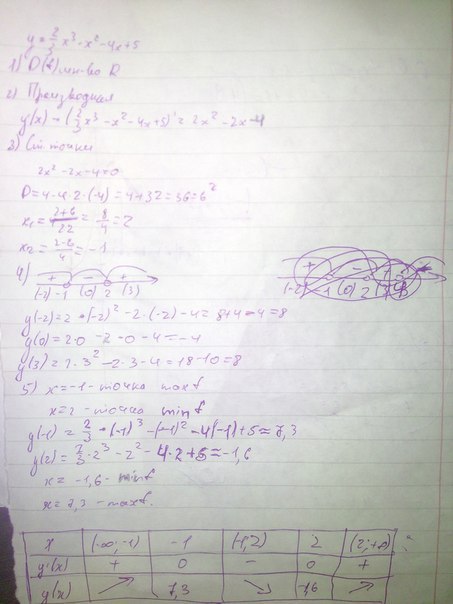 y = 2/3 x³ - x² - 4x + 5
1) D(f) мн-во R
2) Производная
y(x) = (2/3 x³ - x² - 4x + 5)' = 2x² - 2x - 4
3) Ст. точки
2x² - 2x - 4 = 0
D = 4 - 4·2·(-4) = 4 + 32 = 36 = 6²
x₁ = (2+6)/22 = 8/4 = 2
x₂ = (2-6)/4 = -1
4) + - +
(-2) -1 (0) 2 (3)
+ - +
(-2) -1 (0) 2 (3)
y(-2) = 2·(-2)² - 2·(-2) - 4 = 8 + 4 - 4 = 8
y(0) = 2·0 - 2·0 - 4 = -4
y(3) = 2·3² - 2·3 - 4 = 18 - 10 = 8
5) x = -1 - точка max f
x = 2 - точка min f
y(-1) = 2/3·(-1)³ - (-1)² - 4(-1) + 5 ≈ 7,3
y(2) = 2/3·2³ - 2² - 4·2 + 5 ≈ -1,6
x = -1,6 - min f
x = 7,3 - max f.
x (-∞; -1) -1 (-1; 2) 2 (2; +∞)
y'(x) + 0 - 0 +
y(x) ↗ 7,3 ↘ -1,6 ↗